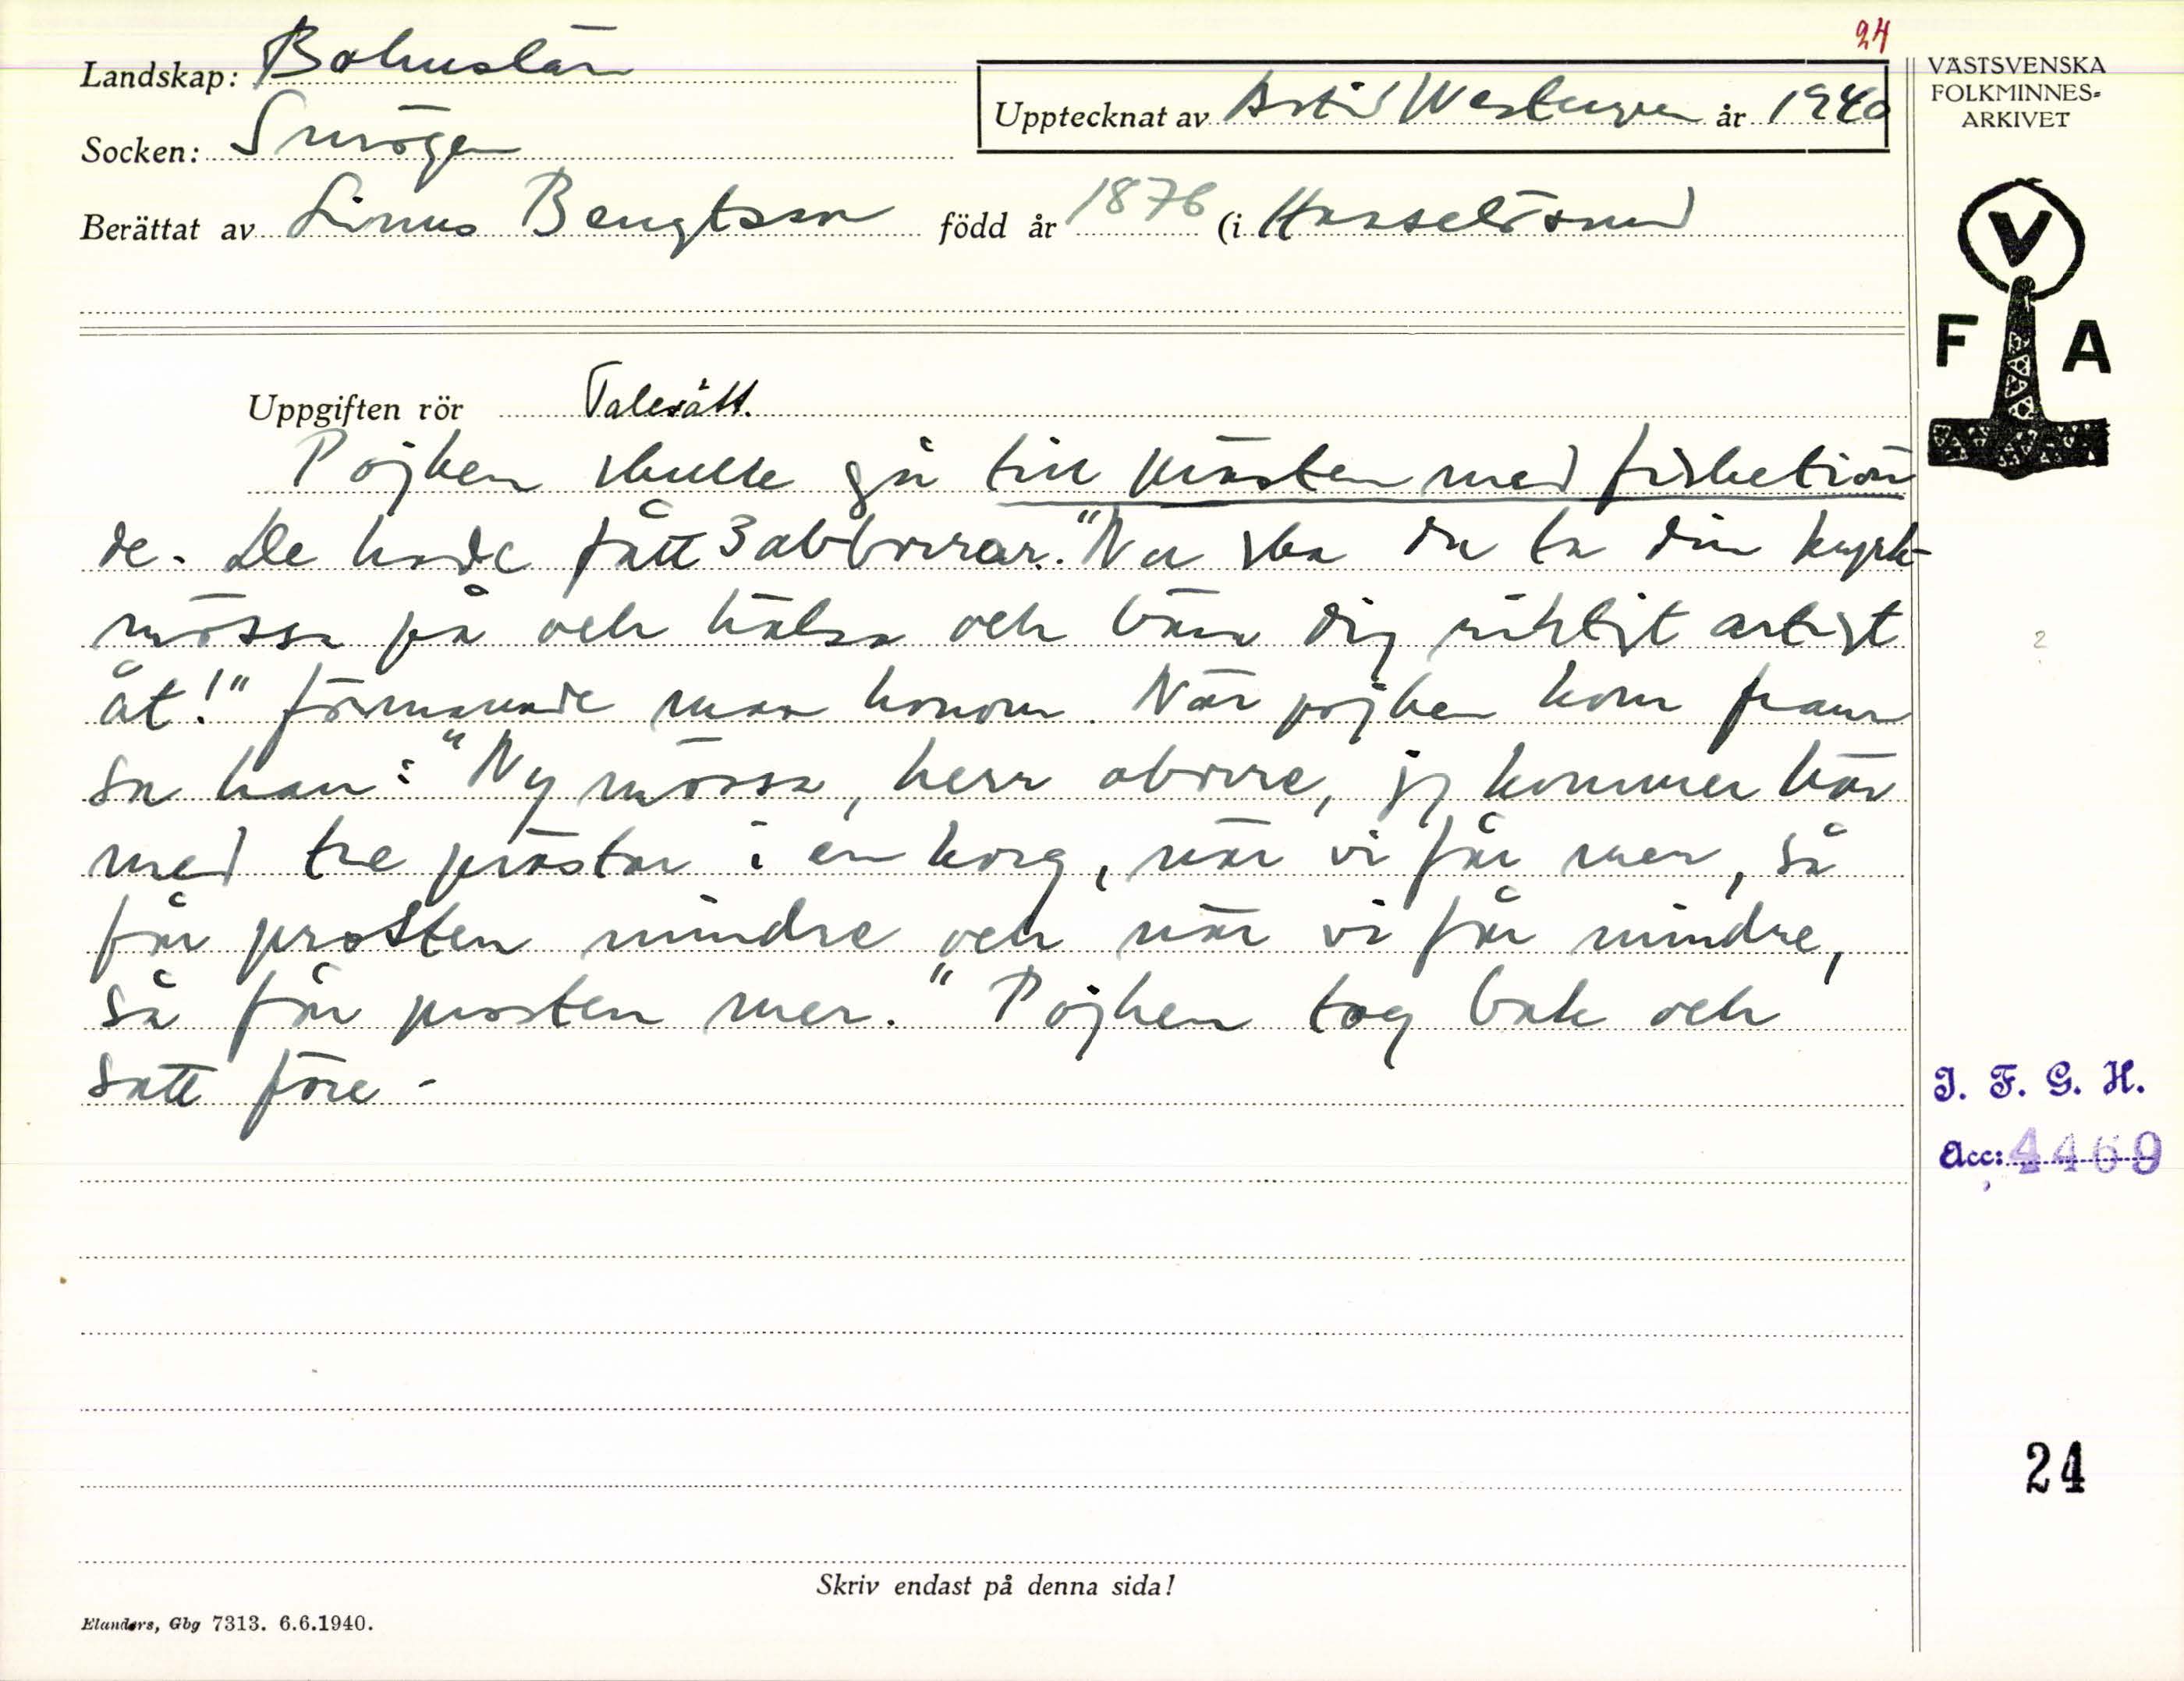 24
Landskap: Bohuslän
Upptecknat av Astrid Westergren år 1940
Socken: Smögen
Berättat av Linus Bengtsson född år 1876 (i Hasselösund
VÄSTSVENSKA
FOLKMINNES-
ARKIVET
V
F A
Uppgiften rör Talesätt.
Pojken skulle gå till prästen med fisketion
de. De hade fått 3 abborrar. "Nu ska du ta din kyrk-
mössa på och hälsa och bära dig riktigt artigt
åt!" förmanade man honom. När pojken kom fram
sa han: "Ny mössa, herr aborre, jg kommer här
med tre prästar i en korg, när vi får mer, så
får prosten mindre och när vi får mindre,
så får prosten mer." Pojken tog bak och
satt före -
2
I. F. G. H.
Acc: 4469
24
Skriv endast på denna sida!
Elanders, Gbg 7313. 6.6.1940.